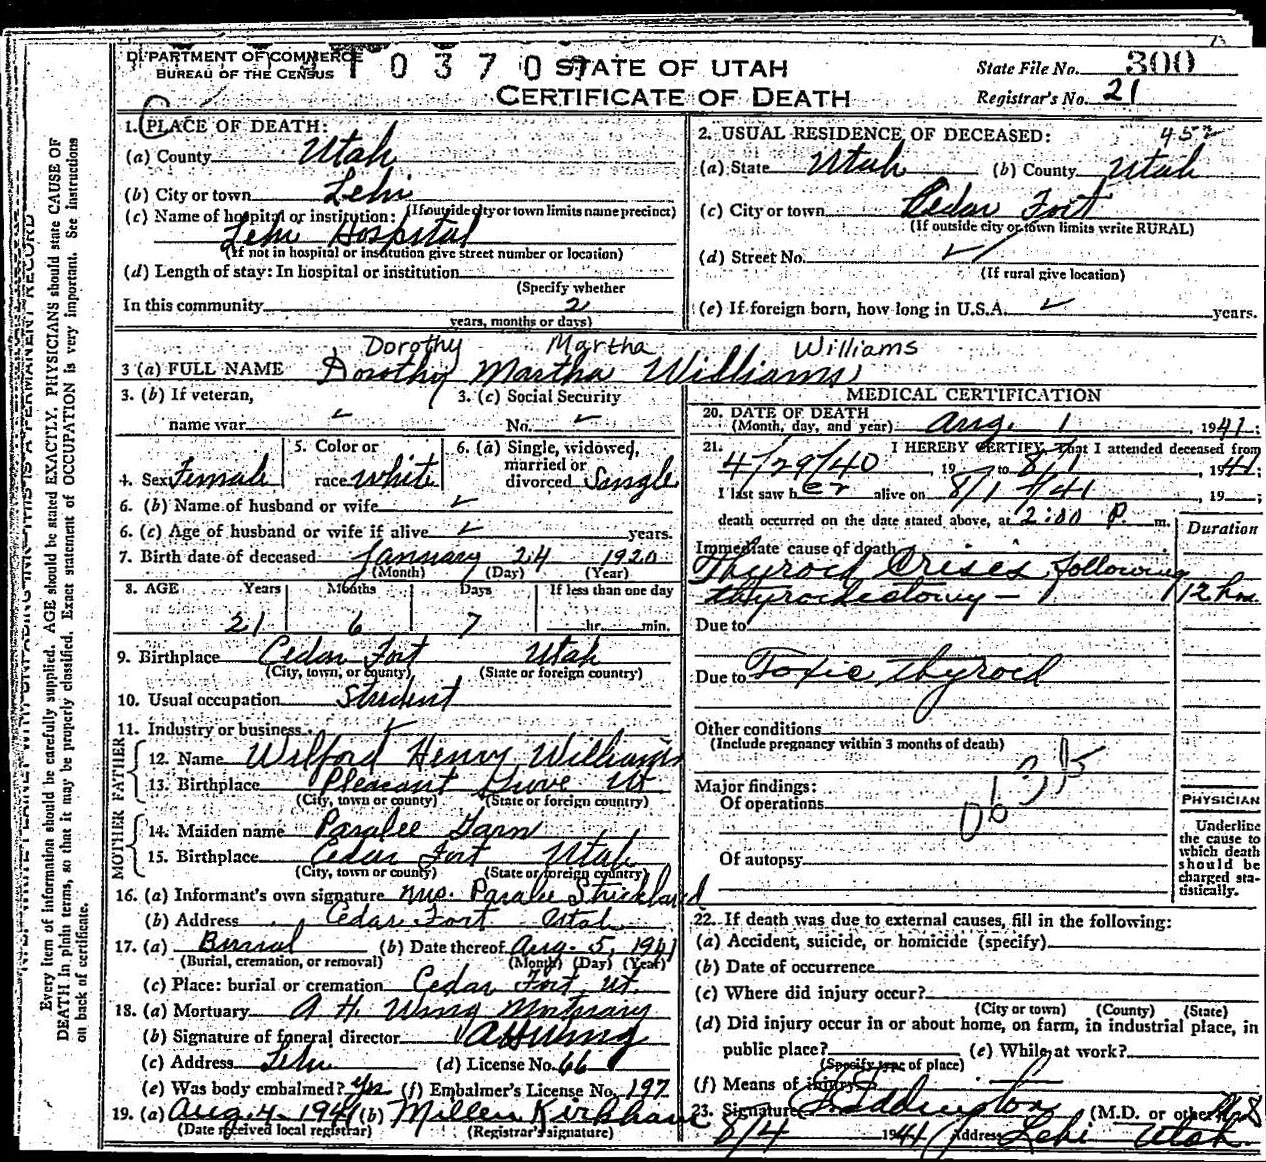 DEPARTMENT OF COMMERCE
BUREAU OF THE CENSUS
0 3 7 0
STATE OF UTAH
CERTIFICATE OF DEATH
State File No. 300
Registrar's No. 21
1. PLACE OF DEATH:
(a) County Utah
(b) City or town Lehi
(If outside city or town limits name precinct)
(c) Name of hospital or institution:
Lehi Hospital
(If not in hospital or institution give street number or location)
(d) Length of stay: In hospital or institution
(Specify whether
In this community 2
years, months or days)
2. USUAL RESIDENCE OF DECEASED:
(a) State Utah (b) County Utah
(c) City or town Cedar Fort
(If outside city or town limits write RURAL)
(d) Street No. ✓
(If rural give location)
(e) If foreign born, how long in U.S.A. ✓ years.
Dorothy Martha Williams
3 (a) FULL NAME Dorothy Martha Williams
3. (b) If veteran,
name war ✓
3. (c) Social Security
No. ✓
4. Sex Female
5. Color or
race white
6. (a) Single, widowed,
married or
divorced Single
6. (b) Name of husband or wife ✓
6. (c) Age of husband or wife if alive ✓ years.
7. Birth date of deceased January 24 1920
(Month) (Day) (Year)
8. AGE Years Months Days If less than one day
21 6 7 hr. min.
9. Birthplace Cedar Fort Utah
(City, town, or county) (State or foreign country)
10. Usual occupation Student
11. Industry or business ✓
FATHER
12. Name Wilford Henry Williams
13. Birthplace Pleasant Grove Ut
(City, town or county) (State or foreign country)
MOTHER
14. Maiden name Paralee
15. Birthplace Cedar Fort Utah
(City, town or county) (State or foreign country)
16. (a) Informant's own signature Mrs. Paralee Strickland
(b) Address Cedar Fort Utah
17. (a) Burial (b) Date thereof Aug. 5, 1941
(Burial, cremation, or removal) (Month) (Day) (Year)
(c) Place: burial or cremation Cedar Fort, Ut.
18. (a) Mortuary A H. Wing Mortuary
(b) Signature of funeral director A H Wing
(c) Address Lehi (d) License No. 66
(e) Was body embalmed? Yes (f) Embalmer's License No. 197
19. (a) Aug 4 1941 (b) Kirkham
(Date received local registrar) (Registrar's signature)
MEDICAL CERTIFICATION
20. DATE OF DEATH
(Month, day, and year) Aug. 1, 1941;
21. I HEREBY CERTIFY, That I attended deceased from
4/29/40, 19 to 8/1, 1941;
I last saw her alive on 8/1/41, 19 ;
death occurred on the date stated above, at 2:00 P. m.
Duration
Immediate cause of death
Thyroid Crises, following
thyroidectomy — 12 hrs
Due to
Due to Toxic thyroid
Other conditions
(Include pregnancy within 3 months of death)
Major findings:
Of operations
Of autopsy
PHYSICIAN
Underline
the cause to
which death
should be
charged sta-
tistically.
22. If death was due to external causes, fill in the following:
(a) Accident, suicide, or homicide (specify)
(b) Date of occurrence
(c) Where did injury occur?
(City or town) (County) (State)
(d) Did injury occur in or about home, on farm, in industrial place, in
public place? (e) While at work?
(Specify type of place)
(f) Means of injury
23. Signature Eddington (M.D. or other)
8/4 1941 Address Lehi Utah.
Every item of information should be carefully supplied. AGE should be stated EXACTLY. PHYSICIANS should state CAUSE OF
DEATH in plain terms, so that it may be properly classified. Exact statement of OCCUPATION is very important. See instructions
on back of certificate.